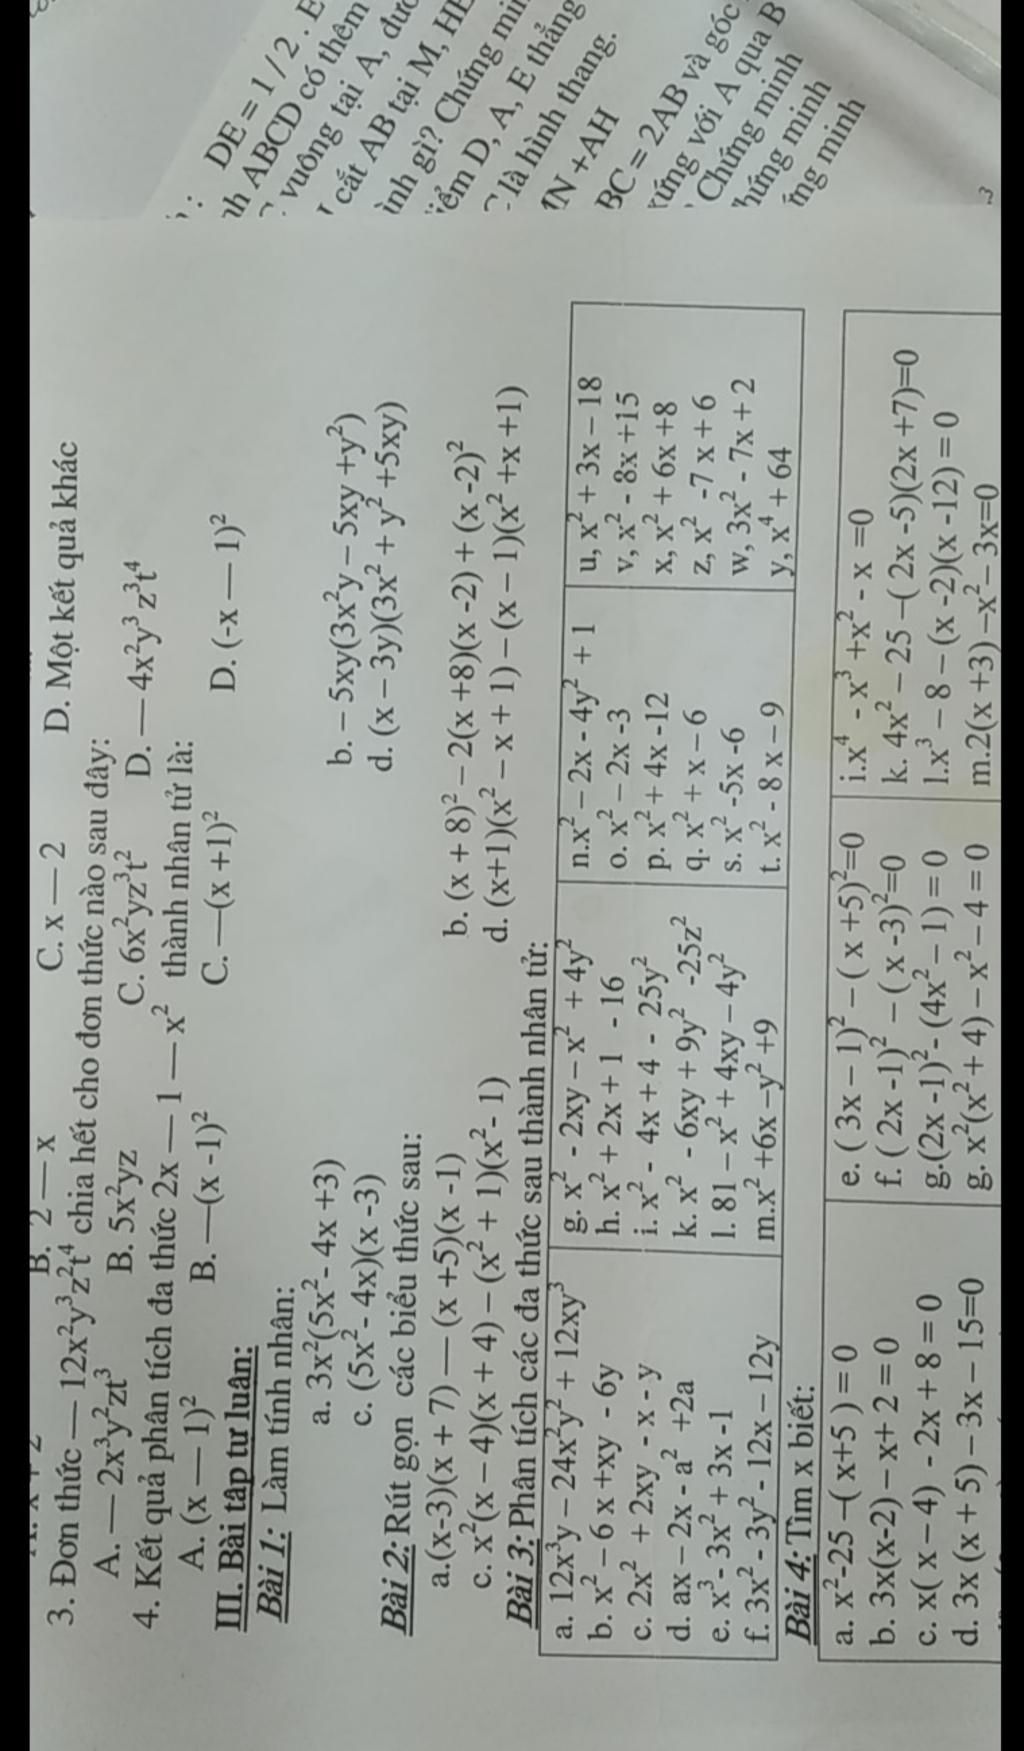 B. 2 — x C. x — 2 D. Một kết quả khác
3. Đơn thức — 12x²y³z²t⁴ chia hết cho đơn thức nào sau đây:
A. — 2x³y²zt³ B. 5x²yz C. 6x²yz³t² D. — 4x²y³ z³t⁴
4. Kết quả phân tích đa thức 2x — 1 — x² thành nhân tử là:
A. (x — 1)² B. —(x -1)² C. —(x +1)² D. (-x — 1)²
III. Bài tập tự luận:
Bài 1: Làm tính nhân:
a. 3x²(5x² - 4x +3) b. – 5xy(3x²y – 5xy +y²)
c. (5x² - 4x)(x -3) d. (x – 3y)(3x² + y² +5xy)
Bài 2: Rút gọn các biểu thức sau:
a.(x-3)(x + 7) — (x +5)(x -1) b. (x + 8)² – 2(x +8)(x -2) + (x -2)²
c. x²(x – 4)(x + 4) – (x² + 1)(x² - 1) d. (x+1)(x² – x + 1) – (x – 1)(x² +x +1)
Bài 3: Phân tích các đa thức sau thành nhân tử:
a. 12x³y – 24x²y² + 12xy³ g. x² - 2xy – x² + 4y² n.x² – 2x - 4y² + 1 u, x² + 3x – 18
b. x² – 6 x +xy - 6y h. x² + 2x + 1 - 16 o. x² – 2x -3 v, x² - 8x +15
c. 2x² + 2xy - x - y i. x² - 4x + 4 - 25y² p. x² + 4x -12 x, x² + 6x +8
d. ax – 2x - a² +2a k. x² - 6xy + 9y² -25z² q. x² + x – 6 z, x² -7 x + 6
e. x³ - 3x² + 3x -1 l. 81 – x² + 4xy – 4y² s. x² -5x -6 w, 3x² - 7x + 2
f. 3x² - 3y² - 12x – 12y m.x² +6x –y² +9 t. x² - 8 x – 9 y, x⁴ + 64
Bài 4: Tìm x biết:
a. x²-25 –( x+5 ) = 0 e. ( 3x – 1)² – ( x +5)²=0 i.x⁴ - x³ +x² - x =0
b. 3x(x-2) – x+ 2 = 0 f. ( 2x -1)² – ( x -3)²=0 k. 4x² – 25 –( 2x -5)(2x +7)=0
c. x( x – 4) - 2x + 8 = 0 g.(2x -1)²- (4x² – 1) = 0 l.x³ – 8 – (x -2)(x -12) = 0
d. 3x (x + 5) – 3x – 15=0 g. x²(x² + 4) – x² – 4 = 0 m.2(x +3) –x² – 3x=0
DE = 1 / 2 .
ABCD có thêm
vuông tại A,
cắt AB tại M,
gì? Chứng
D, A, E thẳng
là hình thang.
+AH
BC = 2AB và góc
với A qua B
Chứng minh
minh
minh
3